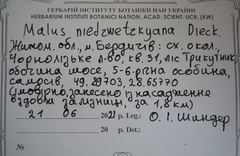 ГЕРБАРІЙ ІНСТИТУТУ БОТАНІКИ НАН УКРАЇНИ
HERBARIUM INSTITUTI BOTANICI NATION. ACAD. SCIENT. UCR. (KW)
Malus niedzwetzkyana Dieck.
Житом. обл., м. Бердичів: сх. окол.,
Чорноліське л-во, кв. 31, ліс Трикутник,
обочина шосе, 5-6-річна особина,
самосів, 49.29703, 28.65770
(ймовірно, занесено з насадження
вздовж залізниці, за 1,8 км)
21 06 2021 р. Leg. О. І. Шиндер
20 р. Det.: